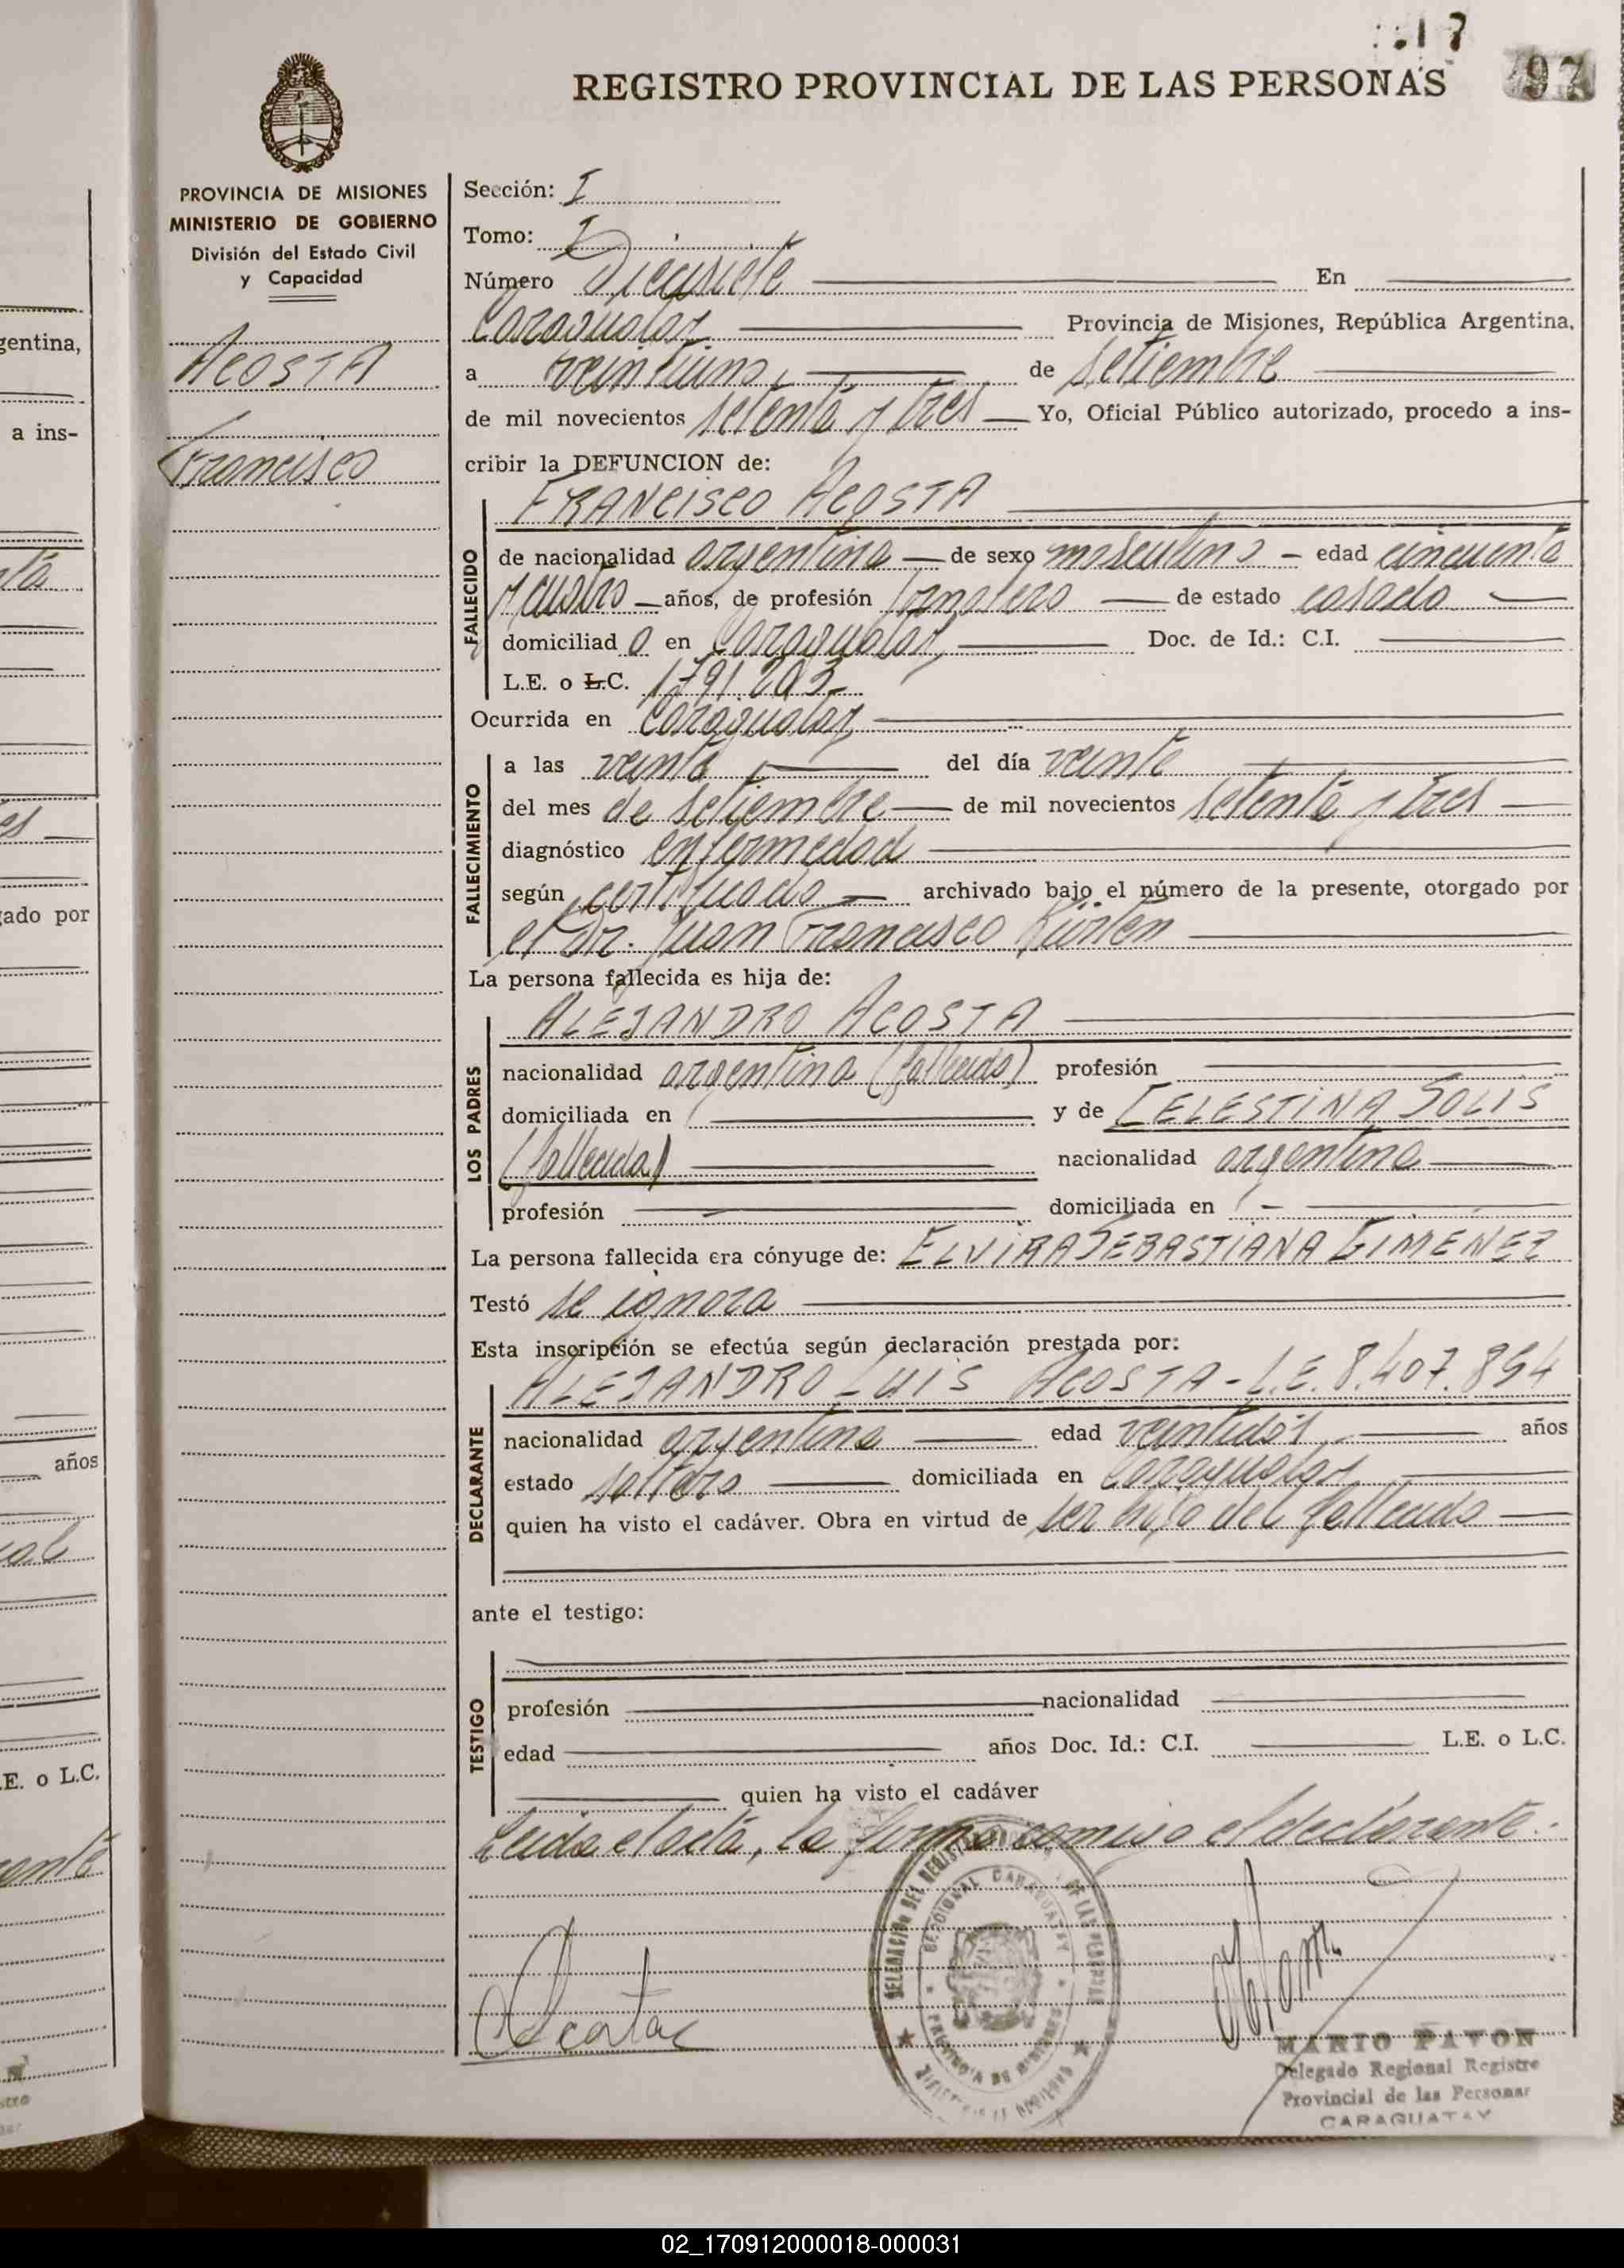 17
REGISTRO PROVINCIAL DE LAS PERSONAS
97
PROVINCIA DE MISIONES
MINISTERIO DE GOBIERNO
División del Estado Civil
y Capacidad
ACOSTA
Francisco
Sección: I
Tomo: I
Número Diecisiete En
Caraguatay Provincia de Misiones, República Argentina,
a veintiuno de setiembre
de mil novecientos setenta y tres Yo, Oficial Público autorizado, procedo a ins-
cribir la DEFUNCION de:
FRANCISCO ACOSTA
FALLECIDO
de nacionalidad argentina de sexo masculino - edad cincuenta
y cuatro años, de profesión jornalero de estado casado
domiciliado en Caraguatay, Doc. de Id.: C.I.
L.E. o L.C. 1791.203
Ocurrida en Caraguatay
FALLECIMIENTO
a las veinte del día veinte
del mes de setiembre de mil novecientos setenta y tres
diagnóstico enfermedad
según certificado archivado bajo el número de la presente, otorgado por
el Dr. Juan Francisco
La persona fallecida es hija de:
LOS PADRES
ALEJANDRO ACOSTA
nacionalidad argentina (fallecido) profesión
domiciliada en y de CELESTINA SOLIS
(fallecida) nacionalidad argentina
profesión domiciliada en
La persona fallecida era cónyuge de: ELVIRA SEBASTIANA GIMENEZ
Testó se ignora
Esta inscripción se efectúa según declaración prestada por:
DECLARANTE
ALEJANDRO LUIS ACOSTA - L.E. 8.407.854
nacionalidad argentina edad veintidós años
estado soltero domiciliada en Caraguatay
quien ha visto el cadáver. Obra en virtud de ser hijo del fallecido
ante el testigo:
TESTIGO
profesión nacionalidad
edad años Doc. Id.: C.I. L.E. o L.C.
quien ha visto el cadáver
Leida el acta, la firma conmigo el declarante.
DELEGACION DEL REGISTRO DE LAS PERSONAS
SECCIONAL CARAGUATAY
PROVINCIA DE MISIONES
Acosta
MARIO PAVON
Delegado Regional Registro
Provincial de las Personas
CARAGUATAY
gentina,
a ins-
gado por
años
E. o L.C.
02_170912000018-000031